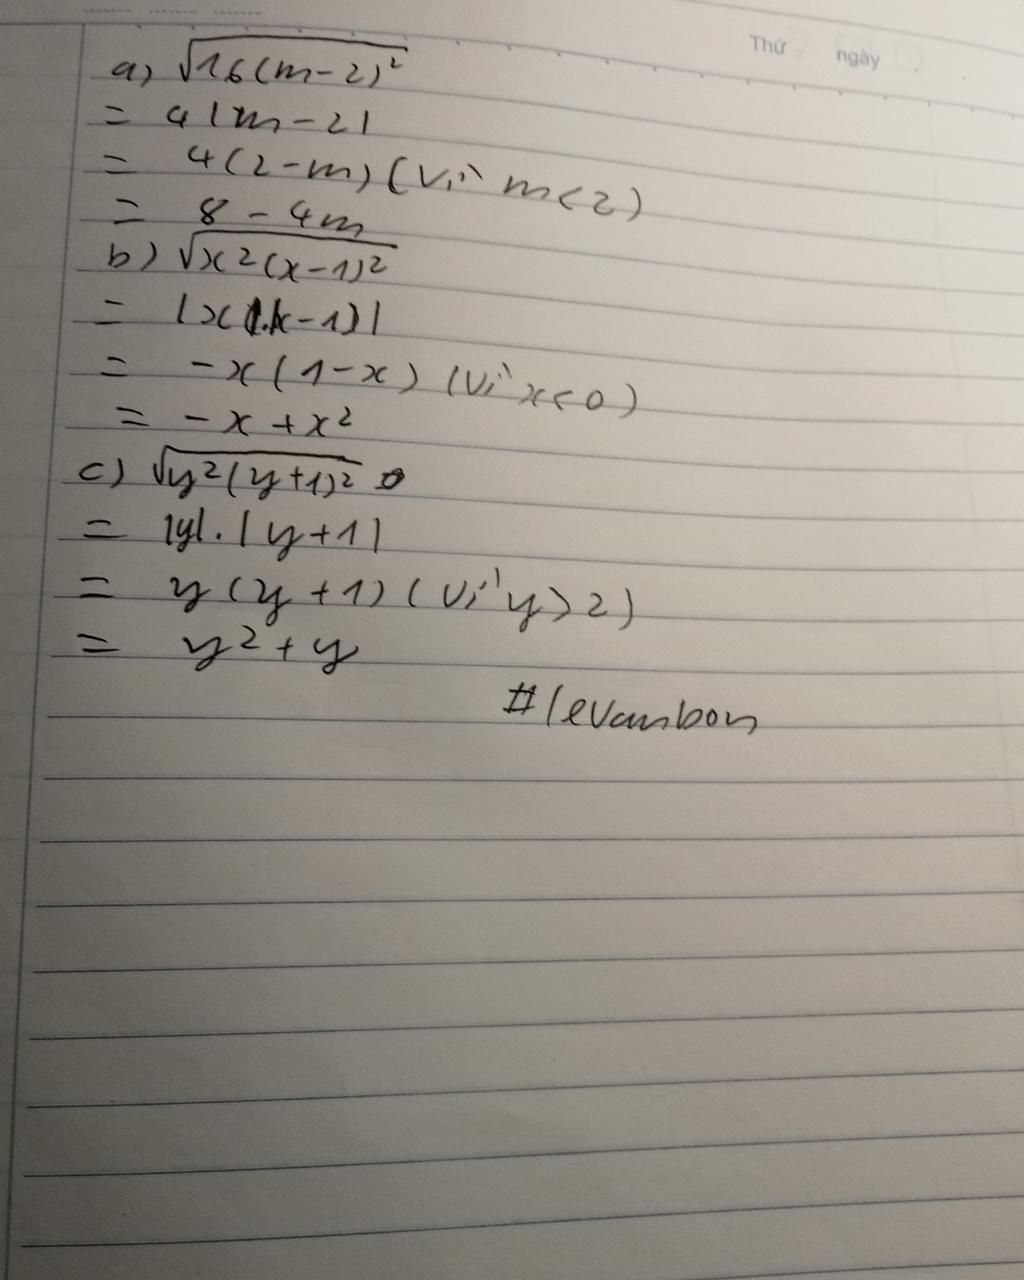 Thứ ngày
a) √16(m-2)²
= 4|m-2|
= 4(2-m) (Vì m<2)
= 8-4m
b) √x²(x-1)²
= |x(x-1)|
= -x(1-x) (Vì x<0)
= -x+x²
c) √y²(y+1)²
= |y|.|y+1|
= y(y+1) (Vì y>2)
= y²+y
#levanbon